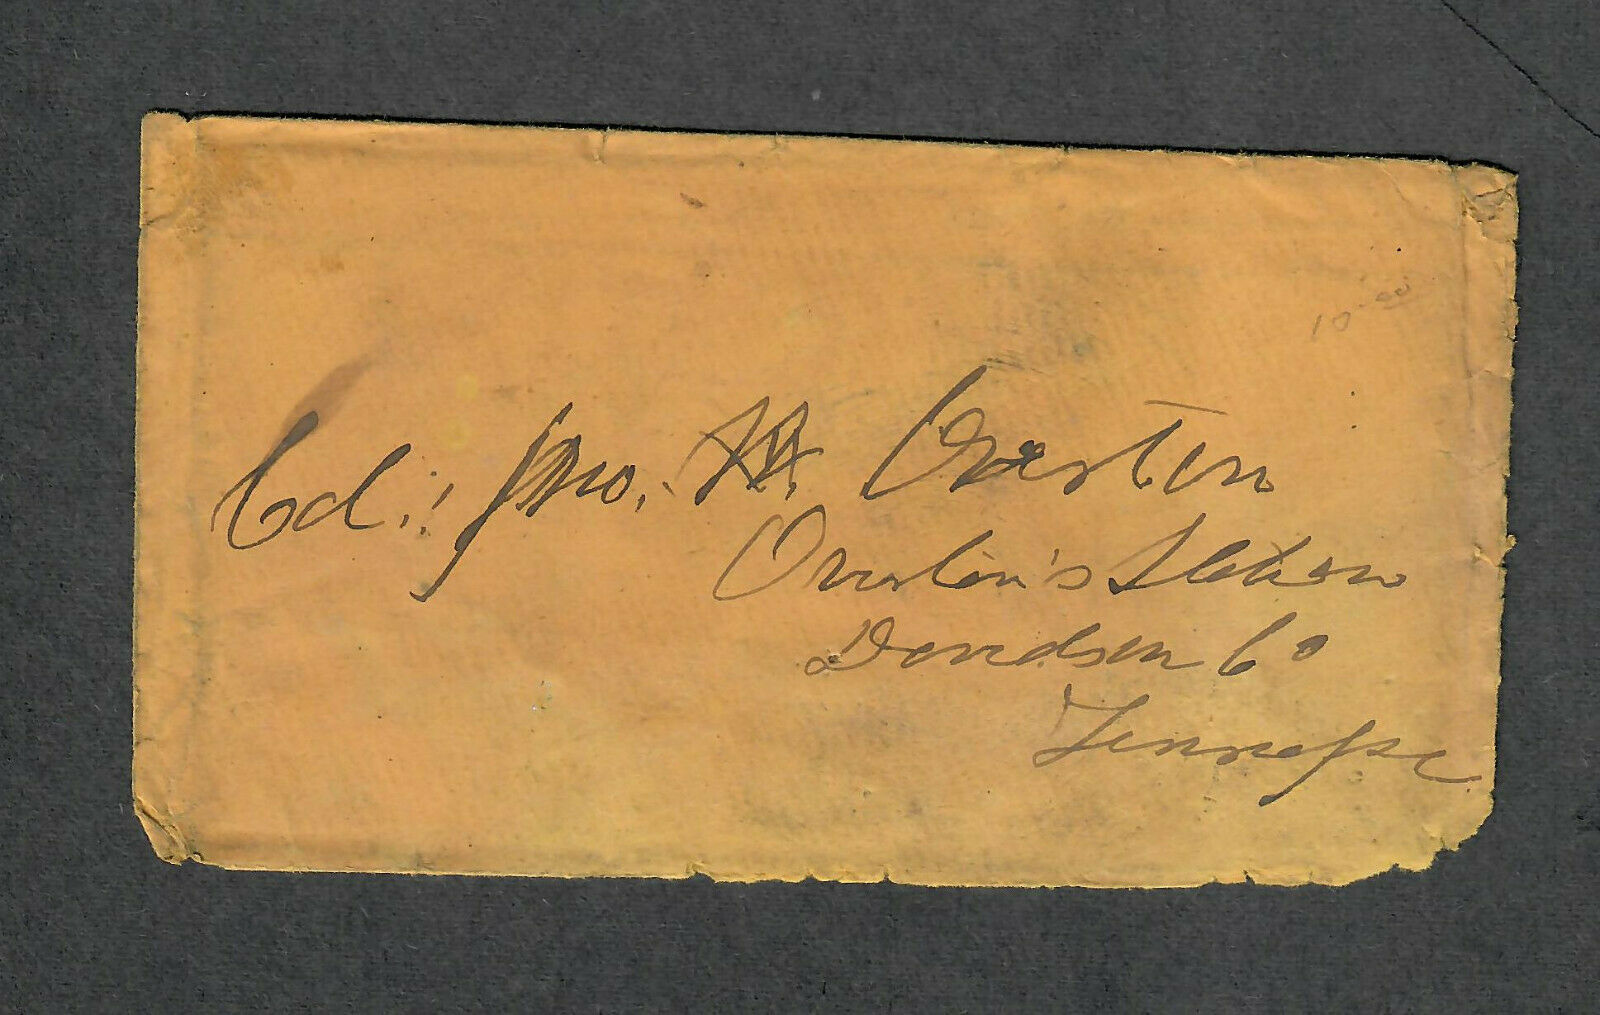 10-00
Col: Jno. Overton
Overton's Station
Davidson Co
Tennessee